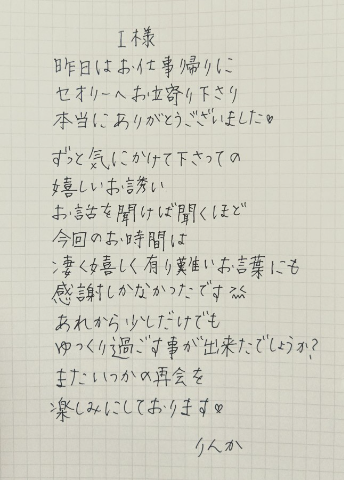 I様
昨日はお仕事帰りに
セオリーへお立寄り下さり
本当にありがとうございました♥
ずっと気にかけて下さっての
嬉しいお誘い
お話を聞けば聞くほど
今回のお時間は
凄く嬉しく有り難いお言葉にも
感謝しかなかったです
あれから少しだけでも
ゆっくり過ごす事が出来たでしょうか?
またいつかの再会を
楽しみにしております♥
りんか